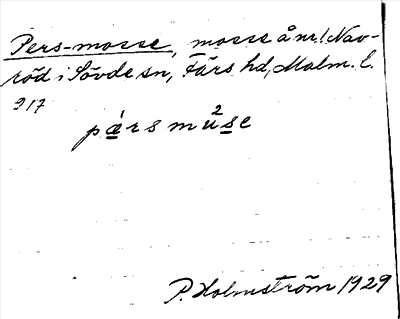 Pers-mosse, mosse å nr 1 Nav-
röd i Sövde sn, Färs hd, Malm. l.
917
pæ̀rsmu²se
P. Holmström 1929